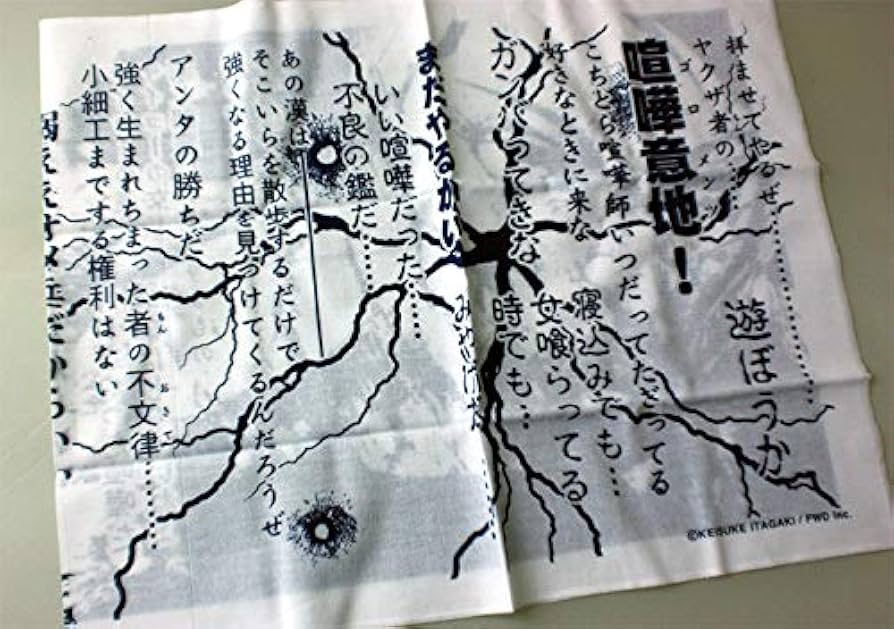 拝ませてやるぜ……
ヤクザ者の……
喧嘩意地!
ゴロメンツ
遊ぼうか…………
こちとら喧嘩師いつだってたぎってる
好きなときに来な
寝込みでも…
女喰らってる
時でも…
ガンバってきな
まだやるかい
いい喧嘩だった……
不良の鑑だ……
あの漢は
そこいらを散歩するだけで
強くなる理由を見つけてくるんだろうぜ
アンタの勝ちだ
強く生まれちまった者の不文律……
もん おきて
小細工までする権利はない
©KEISUKE ITAGAKI / FWD Inc.